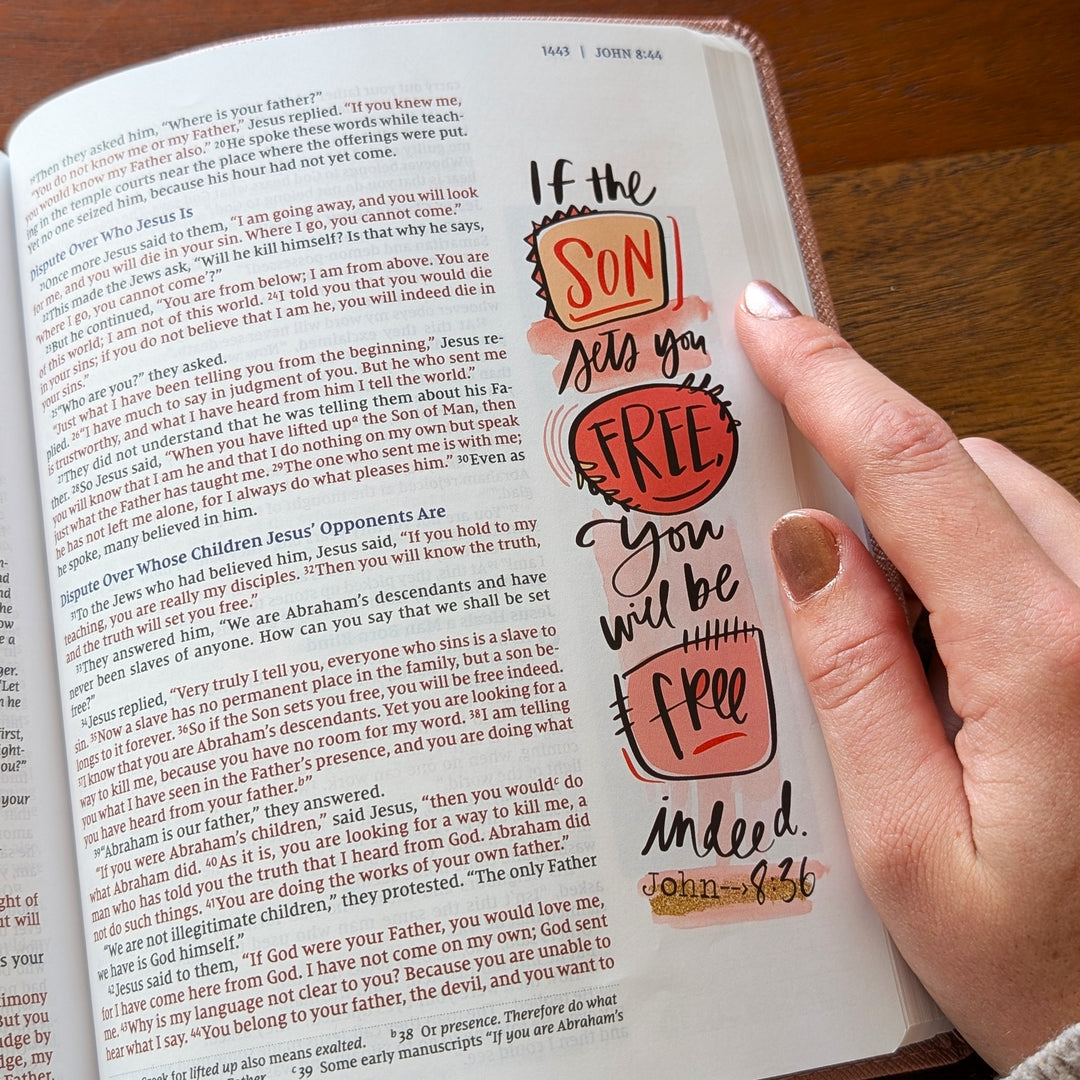 1443 | JOHN 8:44
19Then they asked him, “Where is your father?”
“You do not know me or my Father,” Jesus replied. “If you knew me,
you would know my Father also.” 20He spoke these words while teach-
ing in the temple courts near the place where the offerings were put.
Yet no one seized him, because his hour had not yet come.
Dispute Over Who Jesus Is
21Once more Jesus said to them, “I am going away, and you will look
for me, and you will die in your sin. Where I go, you cannot come.”
22This made the Jews ask, “Will he kill himself? Is that why he says,
‘Where I go, you cannot come’?”
23But he continued, “You are from below; I am from above. You are
of this world; I am not of this world. 24I told you that you would die
in your sins; if you do not believe that I am he, you will indeed die in
your sins.”
25“Who are you?” they asked.
“Just what I have been telling you from the beginning,” Jesus re-
plied. 26“I have much to say in judgment of you. But he who sent me
is trustworthy, and what I have heard from him I tell the world.”
27They did not understand that he was telling them about his Fa-
ther. 28So Jesus said, “When you have lifted upa the Son of Man, then
you will know that I am he and that I do nothing on my own but speak
just what the Father has taught me. 29The one who sent me is with me;
he has not left me alone, for I always do what pleases him.” 30Even as
he spoke, many believed in him.
Dispute Over Whose Children Jesus’ Opponents Are
31To the Jews who had believed him, Jesus said, “If you hold to my
teaching, you are really my disciples. 32Then you will know the truth,
and the truth will set you free.”
33They answered him, “We are Abraham’s descendants and have
never been slaves of anyone. How can you say that we shall be set
free?”
34Jesus replied, “Very truly I tell you, everyone who sins is a slave to
sin. 35Now a slave has no permanent place in the family, but a son be-
longs to it forever. 36So if the Son sets you free, you will be free indeed.
37I know that you are Abraham’s descendants. Yet you are looking for a
way to kill me, because you have no room for my word. 38I am telling
you what I have seen in the Father’s presence, and you are doing what
you have heard from your father.b”
39“Abraham is our father,” they answered.
“If you were Abraham’s children,” said Jesus, “then you wouldc do
what Abraham did. 40As it is, you are looking for a way to kill me, a
man who has told you the truth that I heard from God. Abraham did
not do such things. 41You are doing the works of your own father.”
“We are not illegitimate children,” they protested. “The only Father
we have is God himself.”
42Jesus said to them, “If God were your Father, you would love me,
for I have come here from God. I have not come on my own; God sent
me. 43Why is my language not clear to you? Because you are unable to
hear what I say. 44You belong to your father, the devil, and you want to
for lifted up also means exalted. b38 Or presence. Therefore do what
c39 Some early manuscripts “If you are Abraham’s
If the
SON
sets you
FREE,
you
will be
free
indeed.
John-->8:36